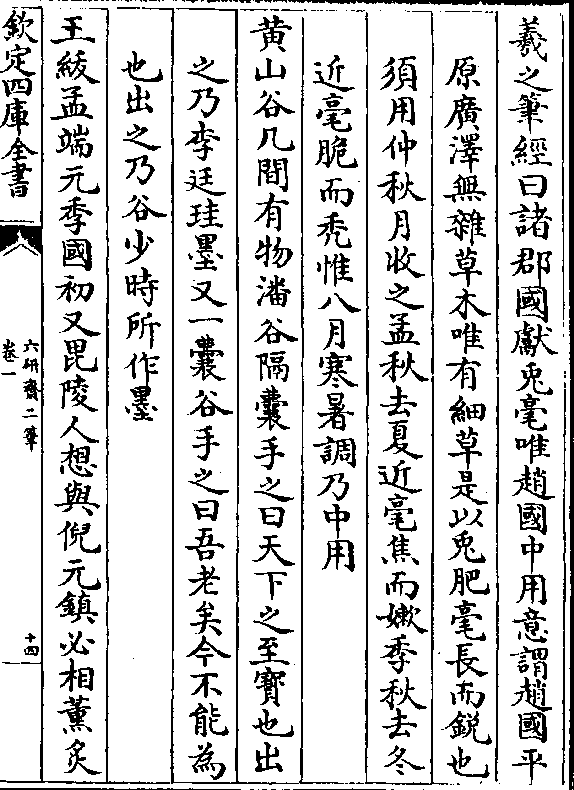 羲之筆經曰諸郡國獻兎毫唯趙國中用意謂趙國平
原廣澤無雜草木唯有細草是以兎肥毫長而鋭也
須用仲秋月收之孟秋去夏近毫焦而嫰季秋去冬
近毫脆而秃惟八月寒暑調乃中用
黄山谷几間有物潘谷隔囊手之曰天下之至寳也出
之乃李廷珪墨又一囊谷手之曰吾老矣今不能為
也出之乃谷少時所作墨
王紱孟端元季國初又毘陵人想與倪元鎮必相薫炙
欽定四庫全書
六研齋二筆
卷一
十四